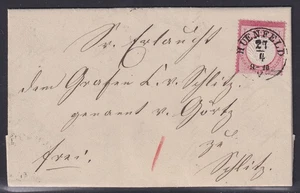 HUENFELD
27
4
Sr. Erlaucht
dem Grafen C. v. Schlitz
genannt v. Görtz
frei.
zu
Schlitz.